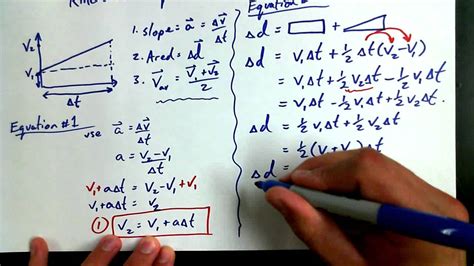 V₂
V₁
Δt
1. slope = a⃗ = Δv⃗/Δt
2. Area = Δd⃗
3. V⃗av = (V⃗₁ + V⃗₂)/2
Equation #1
use a⃗ = Δv⃗/Δt
a = (V₂ − V₁)/Δt
V₁ + aΔt = V₂ − V₁ + V₁
V₁ + aΔt = V₂
① V₂ = V₁ + aΔt
Equation
Δd = +
Δd = V₁Δt + ½Δt(V₂ − V₁)
= V₁Δt + ½V₂Δt −
= V₁Δt − ½V₁Δt + ½V₂Δt
Δd = ½V₁Δt + ½V₂Δt
= ½(V₁ + V₂)Δt
Δd =